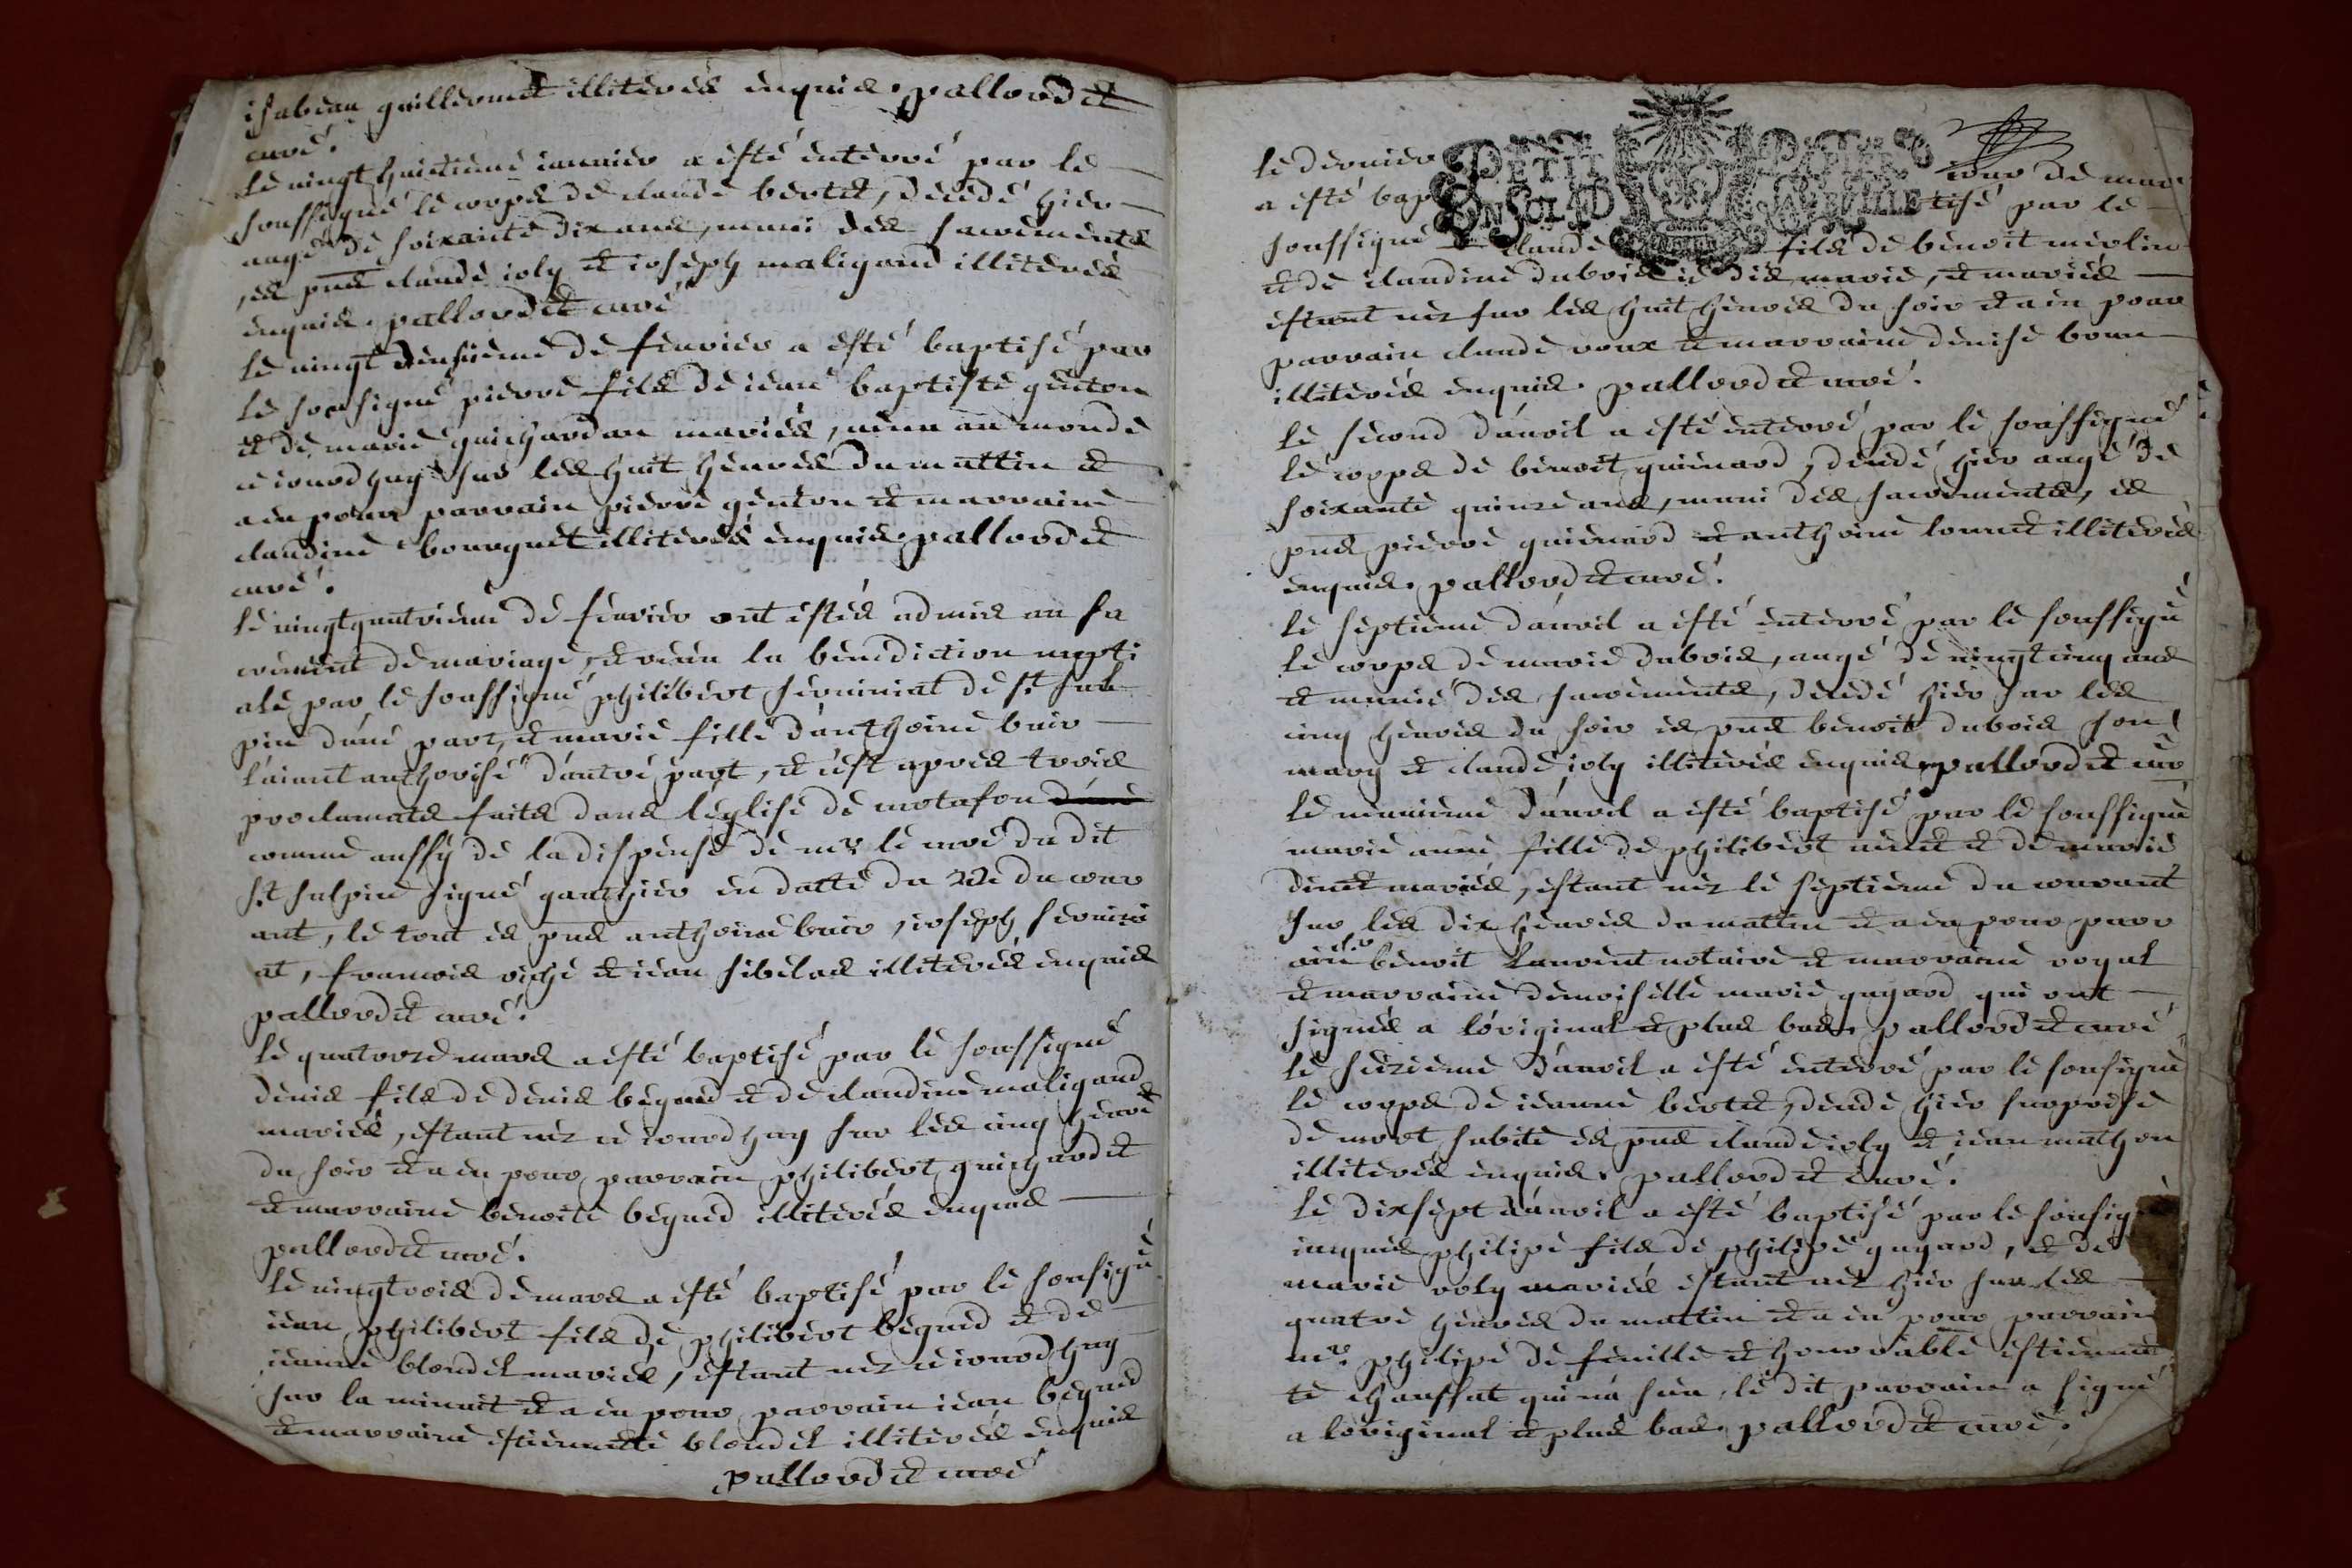 isabeau guillermet illiterés enquis. pallordet
curé.
Le vingt huictieme ianvier a esté enterré par le
soussigné le corps de claude bertet, decedé hier
aagé de soixante dix ans, muni des sacrements
, es pnts claude ioly et ioseph maligand illiterés
enquis. pallordet curé
Le vingt deusiieme de fevrier a esté baptisé par
le sousigné pierre fils de iean baptiste genton
et de marie guichardan mariés, venu au monde
ce iourdhuy sur les huit heures du mattin et
a eu pour parrain pierre genton et marraine
claudine bourguet illiterés enquis. pallordet
curé.
Le vingtquatrieme de fevrier ont estés admis au sa
crement de mariage, et receu la benediction nupti
ale par le soussigné philibert serviniat de st sul
pice d'une part, et marie fille d'anthoine buir
l'aiant authorisé d'autre part, et c'est apres trois
proclamats faits dans l'eglise de
comme aussy de la dispense de mr le curé du dit
st sulpice signé gauthier en datte du 22e du cour
ant, le tout es pnts anthoine buir, ioseph servini
at, francois riche et iean sibelas illiterés enquis
pallordet curé.
Le quatorze mars a esté baptisé par le soussigné
denis fils de denis begued et de claudine maligand
mariés, estant nez ce iourdhuy sur les cinq heures
du soir et a eu pour parrain philibert guichardet
et marraine benoite begued illiterés enquis
pallordet curé.
Le vingtrois de mars a esté baptisé par le sousigné
iean philibert fils de philibert begued et de
ieanne blondel mariés, estant nez ce iourdhuy
sur la minuit et a eu pour parrain iean begued
et marraine estiennette blondel illiterés enquis
pallordet curé
PETIT PAPIER
UN SOL
Le dernier iour de mars
a esté baptisé par le
soussigné claude fils de benoit merlin
et de claudine dubois mariés
estant nez sur les huit heures du soir et a eu pour
parrain claude roux et marraine denise
illiterés enquis. pallordet curé.
Le second d'avril a esté enterré par le soussigné
le corps de benoit guienard, decedé hier aagé de
soixante quinze ans, muni des sacrements, es
pnts pierre guienard et anthoine illiterés
enquis. pallordet curé.
Le septieme d'avril a esté enterré par le soussigné
le corps de marie dubois, aagé de vingt cinq ans
et munie des sacrements, decedé hier sur les
cinq heures du soir es pnts benoit dubois son
mary et claude ioly illiterés enquis. pallordet cure
Le neuvieme d'avril a esté baptisé par le soussigné
marie anne fille de philibert et de marie
mariés, estant nez le septieme du courant
sur les dix heures du mattin et a eu pour parr
ain benoit laurent notaire et marraine royal
et marraine demoiselle marie gugard qui ont
signés a l'original et plus bas. pallordet curé
Le seizieme d'avril a esté enterré par le sousigné
le corps de ieanne bertet, decedé hier surprise
de mort subite es pnts claude ioly et iean mathon
illiterés enquis. pallordet curé.
Le dixsept d'avril a esté baptisé par le sousigné
enquis philipe fils de philipe gugard, et de
marie roly mariés estant nez hier sur les
quatre heures du mattin et a eu pour parrain
mr. philipe de feuille et honorable estiennet
te chaussat qui n'a sceu, le dit parrain a signé
a loriginal et plus bas. pallordet curé.